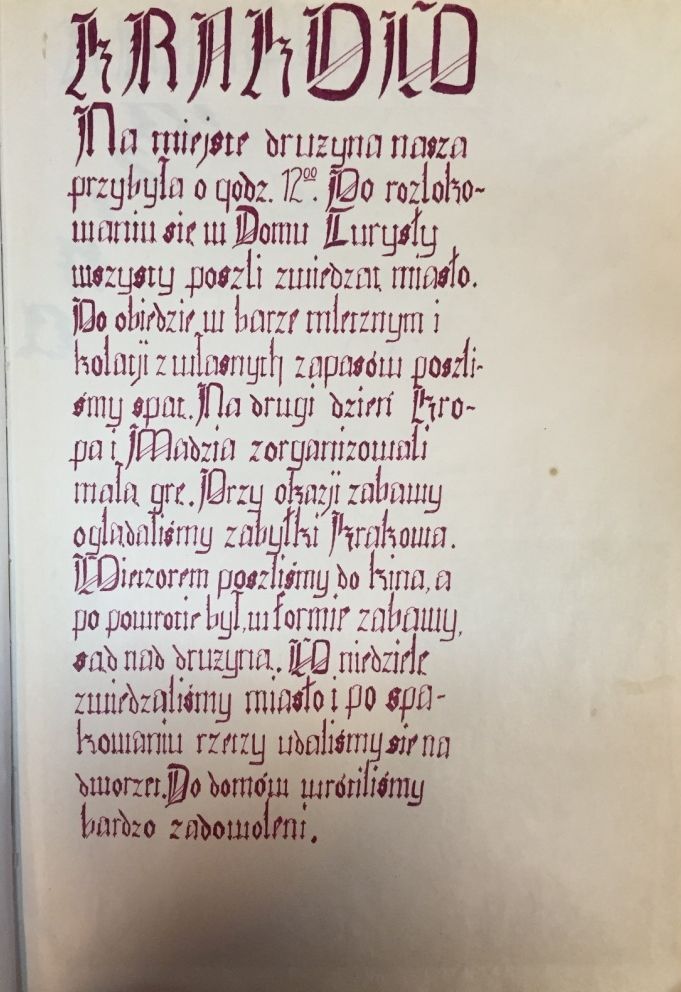 KRAKÓW
Na miejsce drużyna nasza
przybyła o godz. 12⁰⁰. Po rozloko-
waniu się w Domu Turysty
wszyscy poszli zwiedzać miasto.
Po obiedzie w barze mlecznym i
kolacji z własnych zapasów poszli-
śmy spać. Na drugi dzień Kro-
pa i Madzia zorganizowali
małą grę. Przy okazji zabawy
oglądaliśmy zabytki Krakowa.
Wieczorem poszliśmy do kina, a
po powrocie był, w formie zabawy,
sąd nad drużyną. W niedzielę
zwiedzaliśmy miasto i po spa-
kowaniu rzeczy udaliśmy się na
dworzec. Do domów wróciliśmy
bardzo zadowoleni.